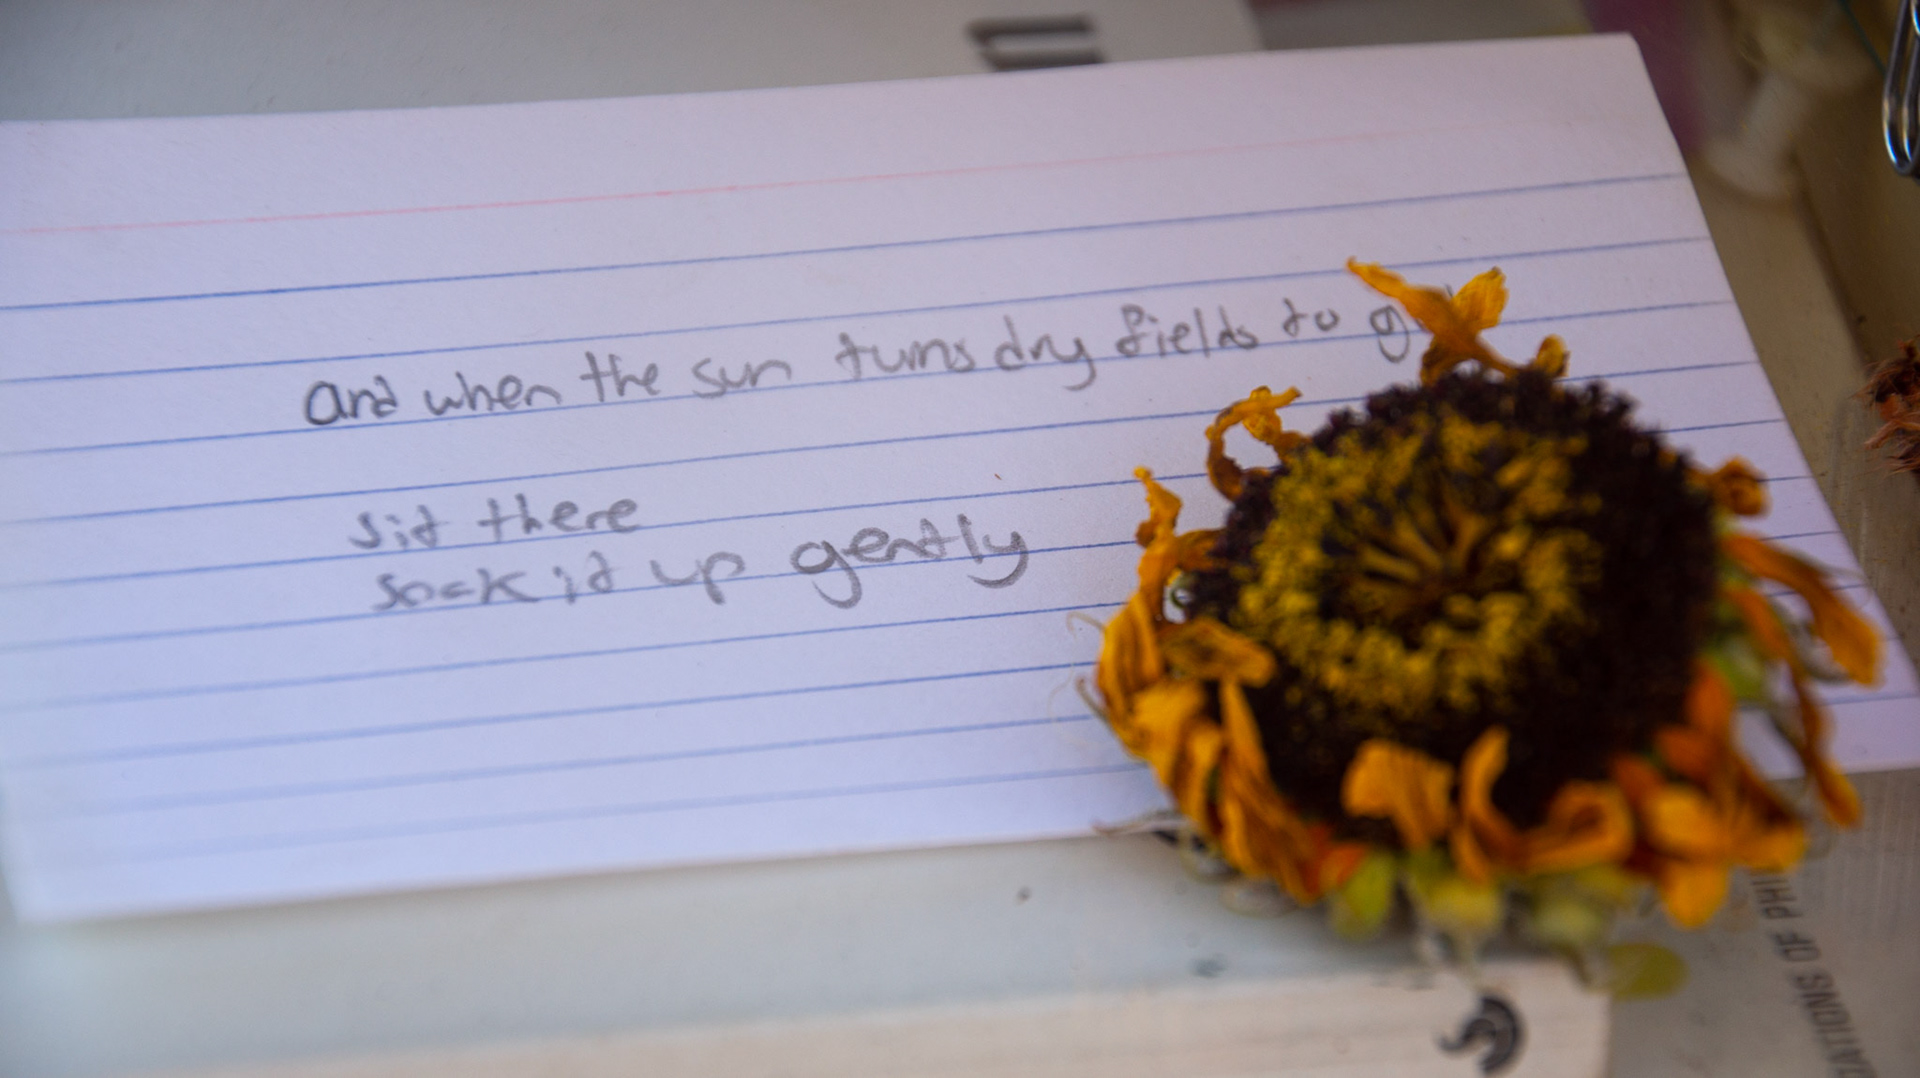 And when the sun turns dry fields to
sit there
sock it up gently
ATIONS OF PHI